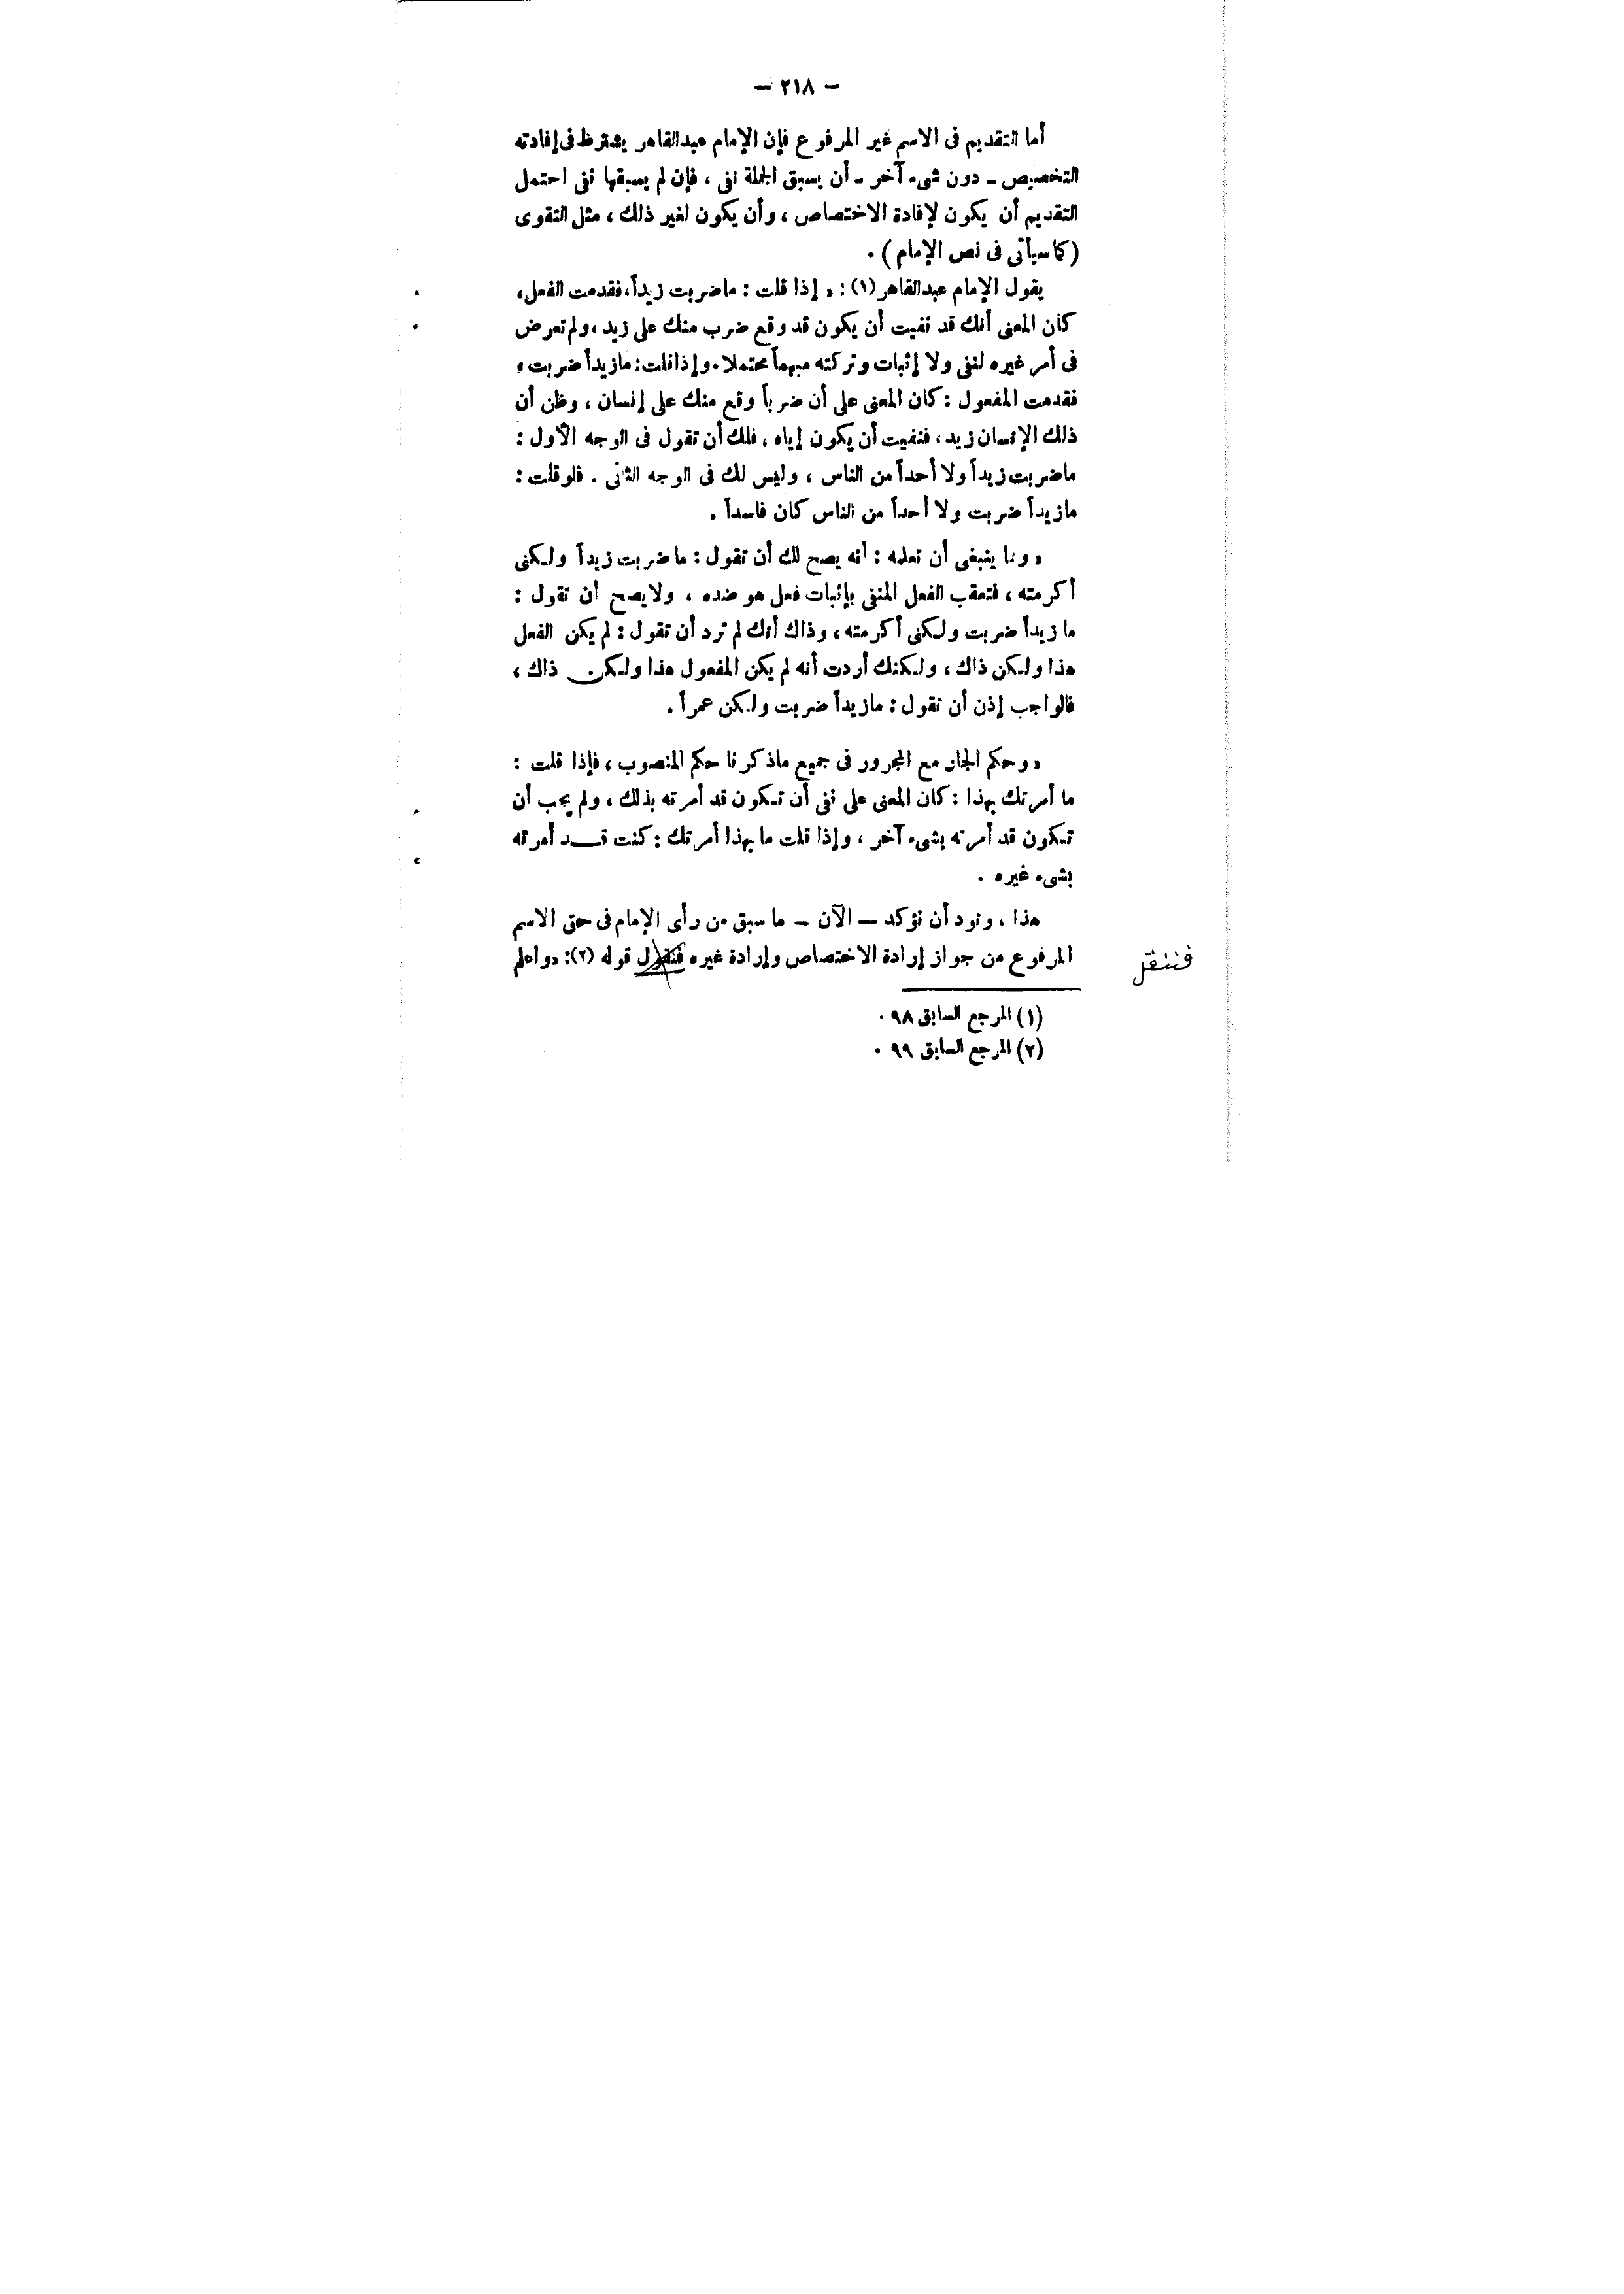 — ٢١٨ —
أما التقديم فى الاسم غير المرفوع فإن الإمام عبدالقاهر يشترط فى إفادته
التخصيص ــ دون شىء آخر ــ أن يسبق الجملة نفى ، فإن لم يسبقها نفى احتمل
التقديم أن يكون لإفادة الاختصاص ، وأن يكون لغير ذلك ، مثل التقوى
( كما سيأتى فى نص الإمام ) .
يقول الإمام عبدالقاهر (١) : « إذا قلت : ماضربت زيداً ، فقدمت الفعل ،
كان المعنى أنك قد نفيت أن يكون قد وقع ضرب منك على زيد ، ولم تعرض
فى أمر غيره لنفى ولا إثبات وتركته مبهماً محتملا . وإذا قلت : مازيداً ضربت و
فقدمت المفعول : كان المعنى على أن ضرباً وقع منك على إنسان ، وظن أن
ذلك الإنسان زيد ، فنفيت أن يكون إياه ، فلك أن تقول فى الوجه الأول :
ماضربت زيداً ولا أحداً من الناس ، وليس لك فى الوجه الثانى . فلو قلت :
مازيداً ضربت ولا أحداً من الناس كان فاسداً .
« ومما ينبغى أن تعلمه : أنه يصح لك أن تقول : ما ضربت زيداً ولكنى
أكرمته ، فتعقب الفعل المنفى بإثبات فعل هو ضده ، ولا يصح أن تقول :
ما زيداً ضربت ولكنى أكرمته ، وذاك أنك لم ترد أن تقول : لم يكن الفعل
هذا ولكن ذاك ، ولكنك أردت أنه لم يكن المفعول هذا ولكن ذاك ،
فالواجب إذن أن تقول : مازيداً ضربت ولكن عمراً .
« وحكم الجار مع المجرور فى جميع ماذكرنا حكم المنصوب ، فإذا قلت :
ما أمرتك بهذا : كان المعنى على نفى أن تكون قد أمرته بذلك ، ولم يجب أن
تكون قد أمرته بشىء آخر ، وإذا قلت ما بهذا أمرتك : كنت قد أمرته
بشىء غيره .
هذا ، ونود أن نؤكد — الآن — ما سبق من رأى الإمام فى حق الاسم
المرفوع من جواز إرادة الاختصاص وإرادة غيره فنقول قوله (٢) : « واعلم
فننقل
(١) المرجع السابق ٩٨ .
(٢) المرجع السابق ٩٩ .